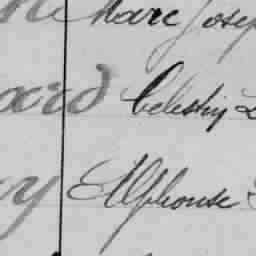 Marc Josep
ard Celestin
y Alphonse